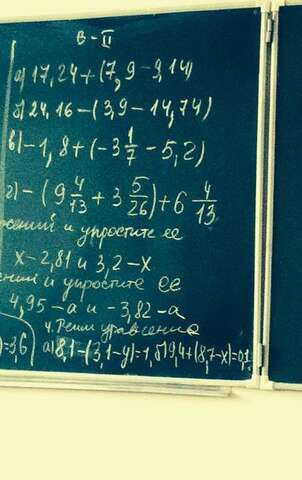 В-II
а) 17,24+(7,9-9,14)
б) 24,16-(3,9-14,74)
в) -1,8+(-3 1/7 -5,2)
г) -(9 4/13 + 3 5/26)+6 4/13
жений и упростите ее
x-2,81 и 3,2-x
ений и упростите ее
4,95-a и -3,82-a
4. Реши уравнение
)=3,6 а) 8,1-(3,1-y)=1, б) 9,4+(8,7-x)=0,1